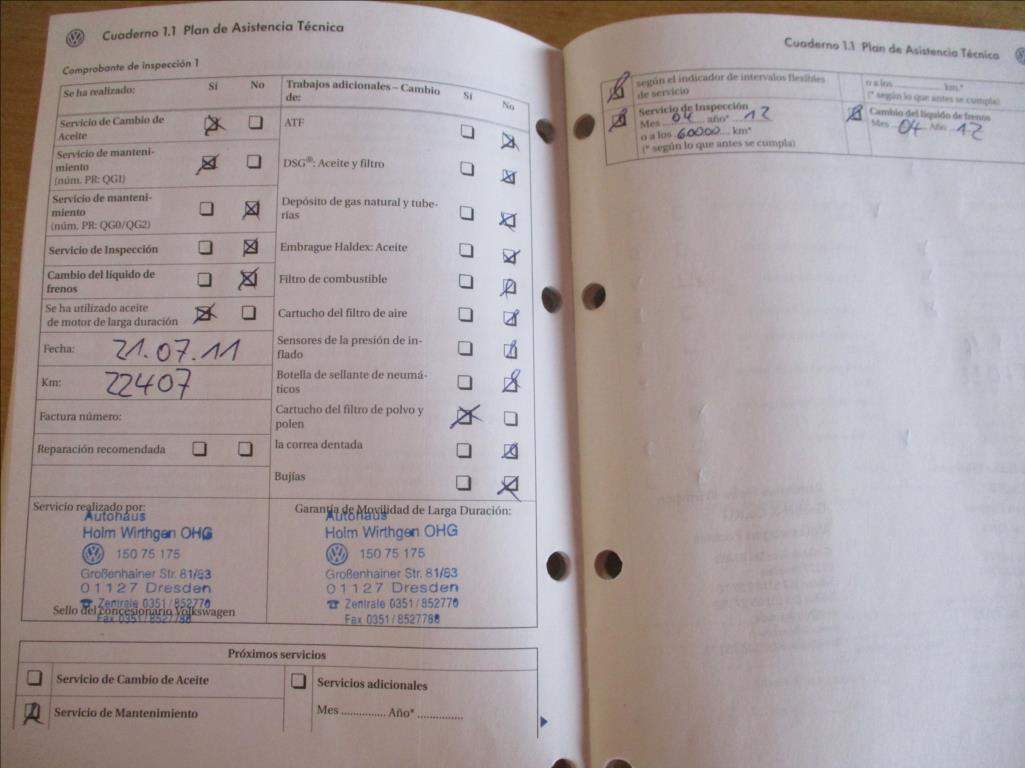 Cuaderno 1.1 Plan de Asistencia Técnica
Comprobante de inspección 1
Se ha realizado: Sí No
Servicio de Cambio de
Aceite
Servicio de manteni-
miento
(núm. PR: QG1)
Servicio de manteni-
miento
(núm. PR: QG0/QG2)
Servicio de Inspección
Cambio del líquido de
frenos
Se ha utilizado aceite
de motor de larga duración
Fecha: 21.07.11
Km: 22407
Factura número:
Reparación recomendada
Trabajos adicionales – Cambio
de: Sí No
ATF
DSG®: Aceite y filtro
Depósito de gas natural y tube-
rías
Embrague Haldex: Aceite
Filtro de combustible
Cartucho del filtro de aire
Sensores de la presión de in-
flado
Botella de sellante de neumá-
ticos
Cartucho del filtro de polvo y
polen
la correa dentada
Bujías
Servicio realizado por:
Autohaus
Holm Wirthgen OHG
150 75 175
Großenhainer Str. 81/83
01127 Dresden
Zentrale 0351/852770
Sello del concesionario Volkswagen
Fax 0351/8527788
Garantía de Movilidad de Larga Duración:
Autohaus
Holm Wirthgen OHG
150 75 175
Großenhainer Str. 81/83
01127 Dresden
Zentrale 0351/852770
Fax 0351/8527788
Próximos servicios
Servicio de Cambio de Aceite
Servicio de Mantenimiento
Servicios adicionales
Mes .............. Año* ..............
Cuaderno 1.1 Plan de Asistencia Técnica
según el indicador de intervalos flexibles
de servicio
Servicio de Inspección
Mes 04 año* 12
o a los 60000 km*
(* según lo que antes se cumpla)
o a los .................. km.*
(* según lo que antes se cumpla)
Cambio del líquido de frenos
Mes 04 Año 12